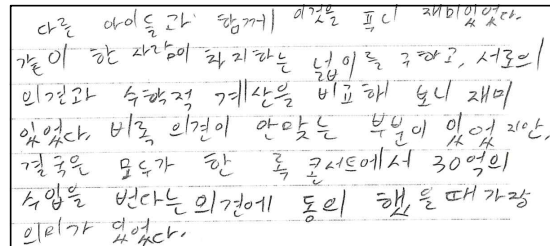 다른 아이들과 함께 이것을 푸니 재미있었다.
같이 한 사람이 차지하는 넓이를 구하고, 서로의
의견과 수학적 계산을 비교해 보니 재미
있었다. 비록 의견이 안맞는 부분이 있었지만,
결국은 모두가 한 록 콘서트에서 30억의
수입을 번다는 의견에 동의 했을 때 가장
의미가 있었다.